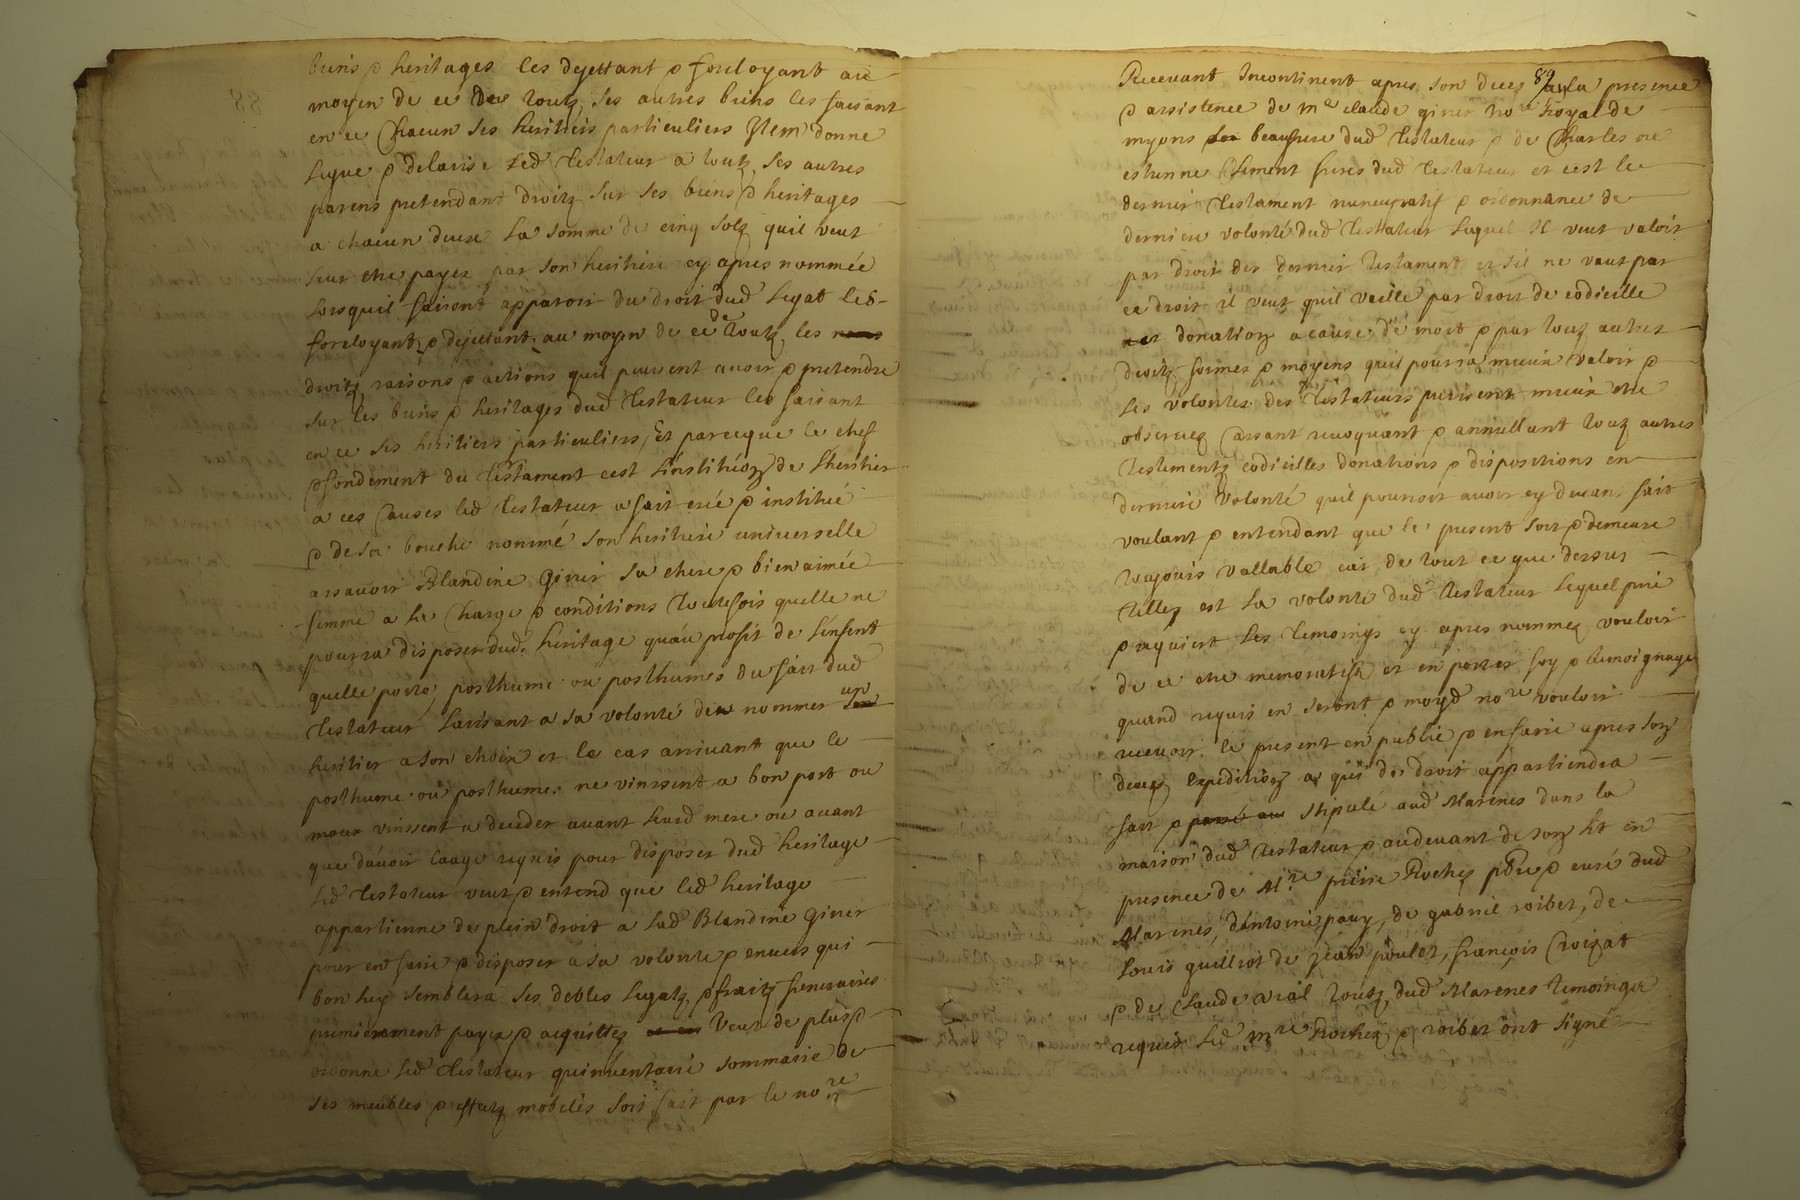 biens & heritages les dejettant & forcloyant au
moyen de ce de toutz ses autres biens les faisant
en ce Chacun ses heritiers particuliers Item donne
legue & delaisse led Testateur a toutz ses autres
parens pretendant droitz sur ses biens & heritages
a chacun deux la somme de cinq solz quil veut
leur etre payez par son heritiere cy apres nommée
lorsquil fairont apparoir du droit dud legat les
forcloyant & dejettant au moyen de ce de toutz les
droitz raisons & actions quil peuvent avoir & pretendre
sur les biens & heritages dud Testateur les faisant
en ce ses heritiers particuliers, Et parceque le chef
& fondement du Testament cest linstitution de lheritier
a ces Causes led Testateur a fait créé & institué
& de sa bouche nommé son heritiere universelle
assavoir Blandine Giner sa chere & bien aimée
femme a la Charge & conditions toutefois quelle ne
pourra disposer dud heritage quau profit de lenfent
quelle porte, posthume ou posthumes du fait dud
Testateur laissant a sa volonté den nommer un
heritier a son choix et le cas arrivant que le
posthume ou posthumes ne vinssent a bon port ou
mour vinssent a deceder avant leurd mere ou avant
que davoir laage requis pour disposer dud heritage
led Testateur veut & entend que led heritage
appartienne de plein droit a lad Blandine Giner
pour en faire & disposer a sa volonte & envers qui
bon luy semblera ses debtes legatz & fraitz funeraires
premierament payez & acquittez Veut de plus &
ordonne led Testateur quinventaire sommaire de
ses meubles & effectz mobiles soit fait par le no.re
89
Recevant Incontinent apres son deces a la presence
& assistence de me claude giner no.re Royal de
myons beaufrere dud Testateur & de Charles ou
estienne Climent freres dud Testateur et cest le
dernier Testament nuncupatif & ordonnance de
derniere volonté dud Testateur lequel Il veut valoir
par droit der dernier Testament et sil ne vaut par
ce droit il veut quil vaille par droit de codicille
donation acause de mort & par toutz autres
droitz formes & moyens quil pourra mieux valoir &
les volontes des Testateurs peuvent mieux etre
observez Cassant revoquant & annullant toutz autres
Testements codicilles donations & dispositions en
derniere volonté quil pourroit avoir cy devan fait
voulant & entendant que le present soit & demeure
toujours vallable car de tout ce que dessus
Telle est la volonté dud testateur lequel prie
& requiert les temoings cy apres nommez vouloir
de ce etre memoratifz et en porter foy & temoignage
quand requis en seront & moyd no.re vouloir
recevoir le present en public & en faire apres son
deces Expedition a qui de droit appartiendra
fait & stipulé aud Marenes dans la
maison dud testateur & audevant de son lit en
presence de M.re pierre Rochez pbre & curé dud
Marenes, dantoine pauy, de gabriel roibet, de
Louis guilliot de jean poulet, françois Croizat
& de Claude vial toutz dud Marenes temoings
requis led m.re Rochez & roibet ont signé